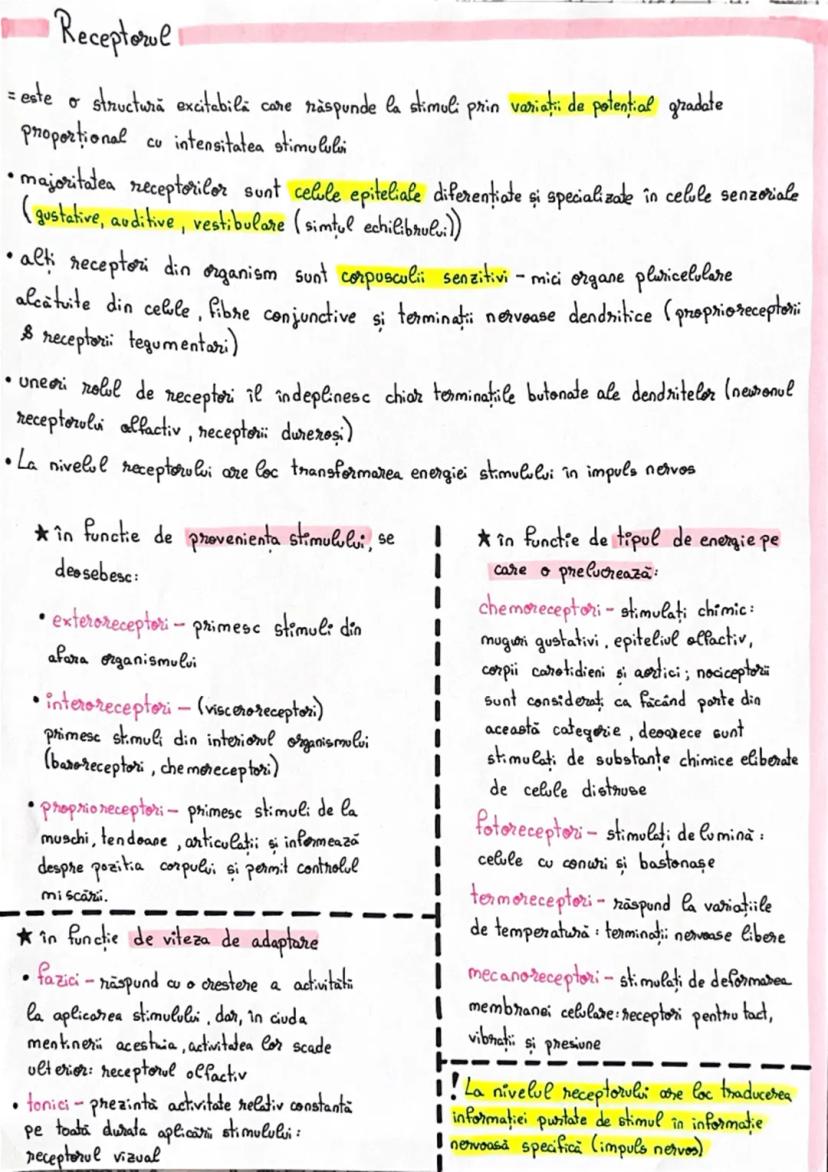 Receptorul
= este o structură excitabilă care răspunde la stimuli prin variații de potențial gradate
proporțional cu intensitatea stimulului
• majoritatea receptorilor sunt celule epiteliale diferențiate și specializate în celule senzoriale
(gustative, auditive, vestibulare (simțul echilibrului))
• alți receptori din organism sunt corpusculii senzitivi - mici organe pluricelulare
alcătuite din celule, fibre conjunctive și terminații nervoase dendritice (proprioreceptorii
& receptorii tegumentari)
• uneori rolul de receptori îl îndeplinesc chiar terminațiile butonate ale dendritelor (neuronul
receptorului olfactiv, receptorii dureroși)
• La nivelul receptorului are loc transformarea energiei stimulului în impuls nervos
★ în functie de provenienta stimulului, se
deosebesc:
• exteroreceptori - primesc stimuli din
afara organismului
• interoreceptori - (visceroreceptori)
primesc stimuli din interiorul organismului
(baroreceptori, chemoreceptori)
• proprioreceptori - primesc stimuli de la
muschi, tendoane, articulații și informează
despre poziția corpului și permit controlul
miscării.
★ în funcție de viteza de adaptare
• fazici - răspund cu o crestere a activității
la aplicarea stimulului, dar, în ciuda
mentinerii acestuia, activitatea lor scade
ulterior: receptorul olfactiv
• tonici - prezintă activitate relativ constantă
pe toată durata aplicării stimulului:
receptorul vizual
★ în functie de tipul de energie pe
care o prelucrează:
chemoreceptori - stimulați chimic:
muguri gustativi, epiteliul olfactiv,
corpii carotidieni și aortici; nociceptorii
sunt considerați ca făcând parte din
această categorie, deoarece sunt
stimulați de substanțe chimice eliberate
de celule distruse
fotoreceptori - stimulați de lumină:
celule cu conuri și bastonașe
termoreceptori - răspund la variațiile
de temperatură: terminații nervoase libere
mecanoreceptori - stimulați de deformarea
membranei celulare: receptori pentru tact,
vibrații și presiune
! La nivelul receptorului are loc traducerea
informației purtate de stimul în informație
nervoasă specifică (impuls nervos)